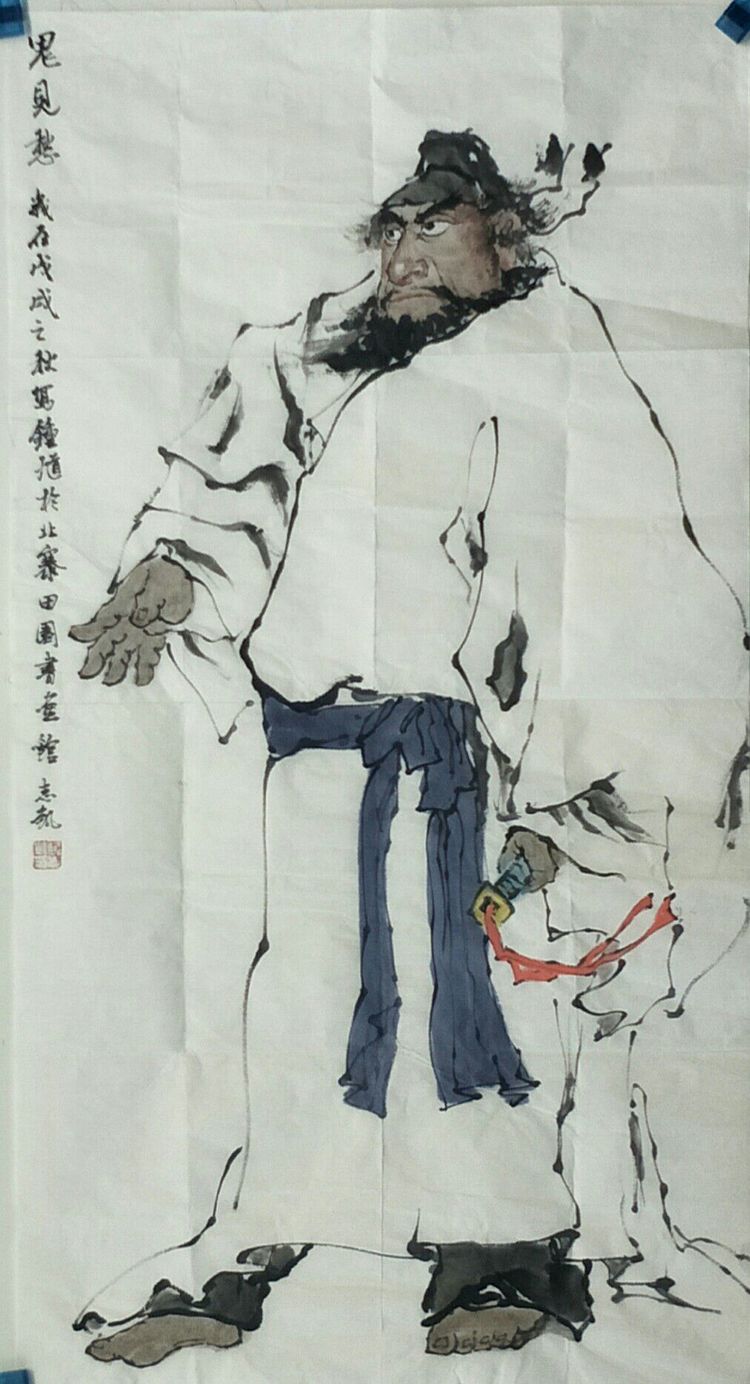 鬼見愁 歲在戊戌之秋寫鐘馗於北寨田園書畫館 志凱